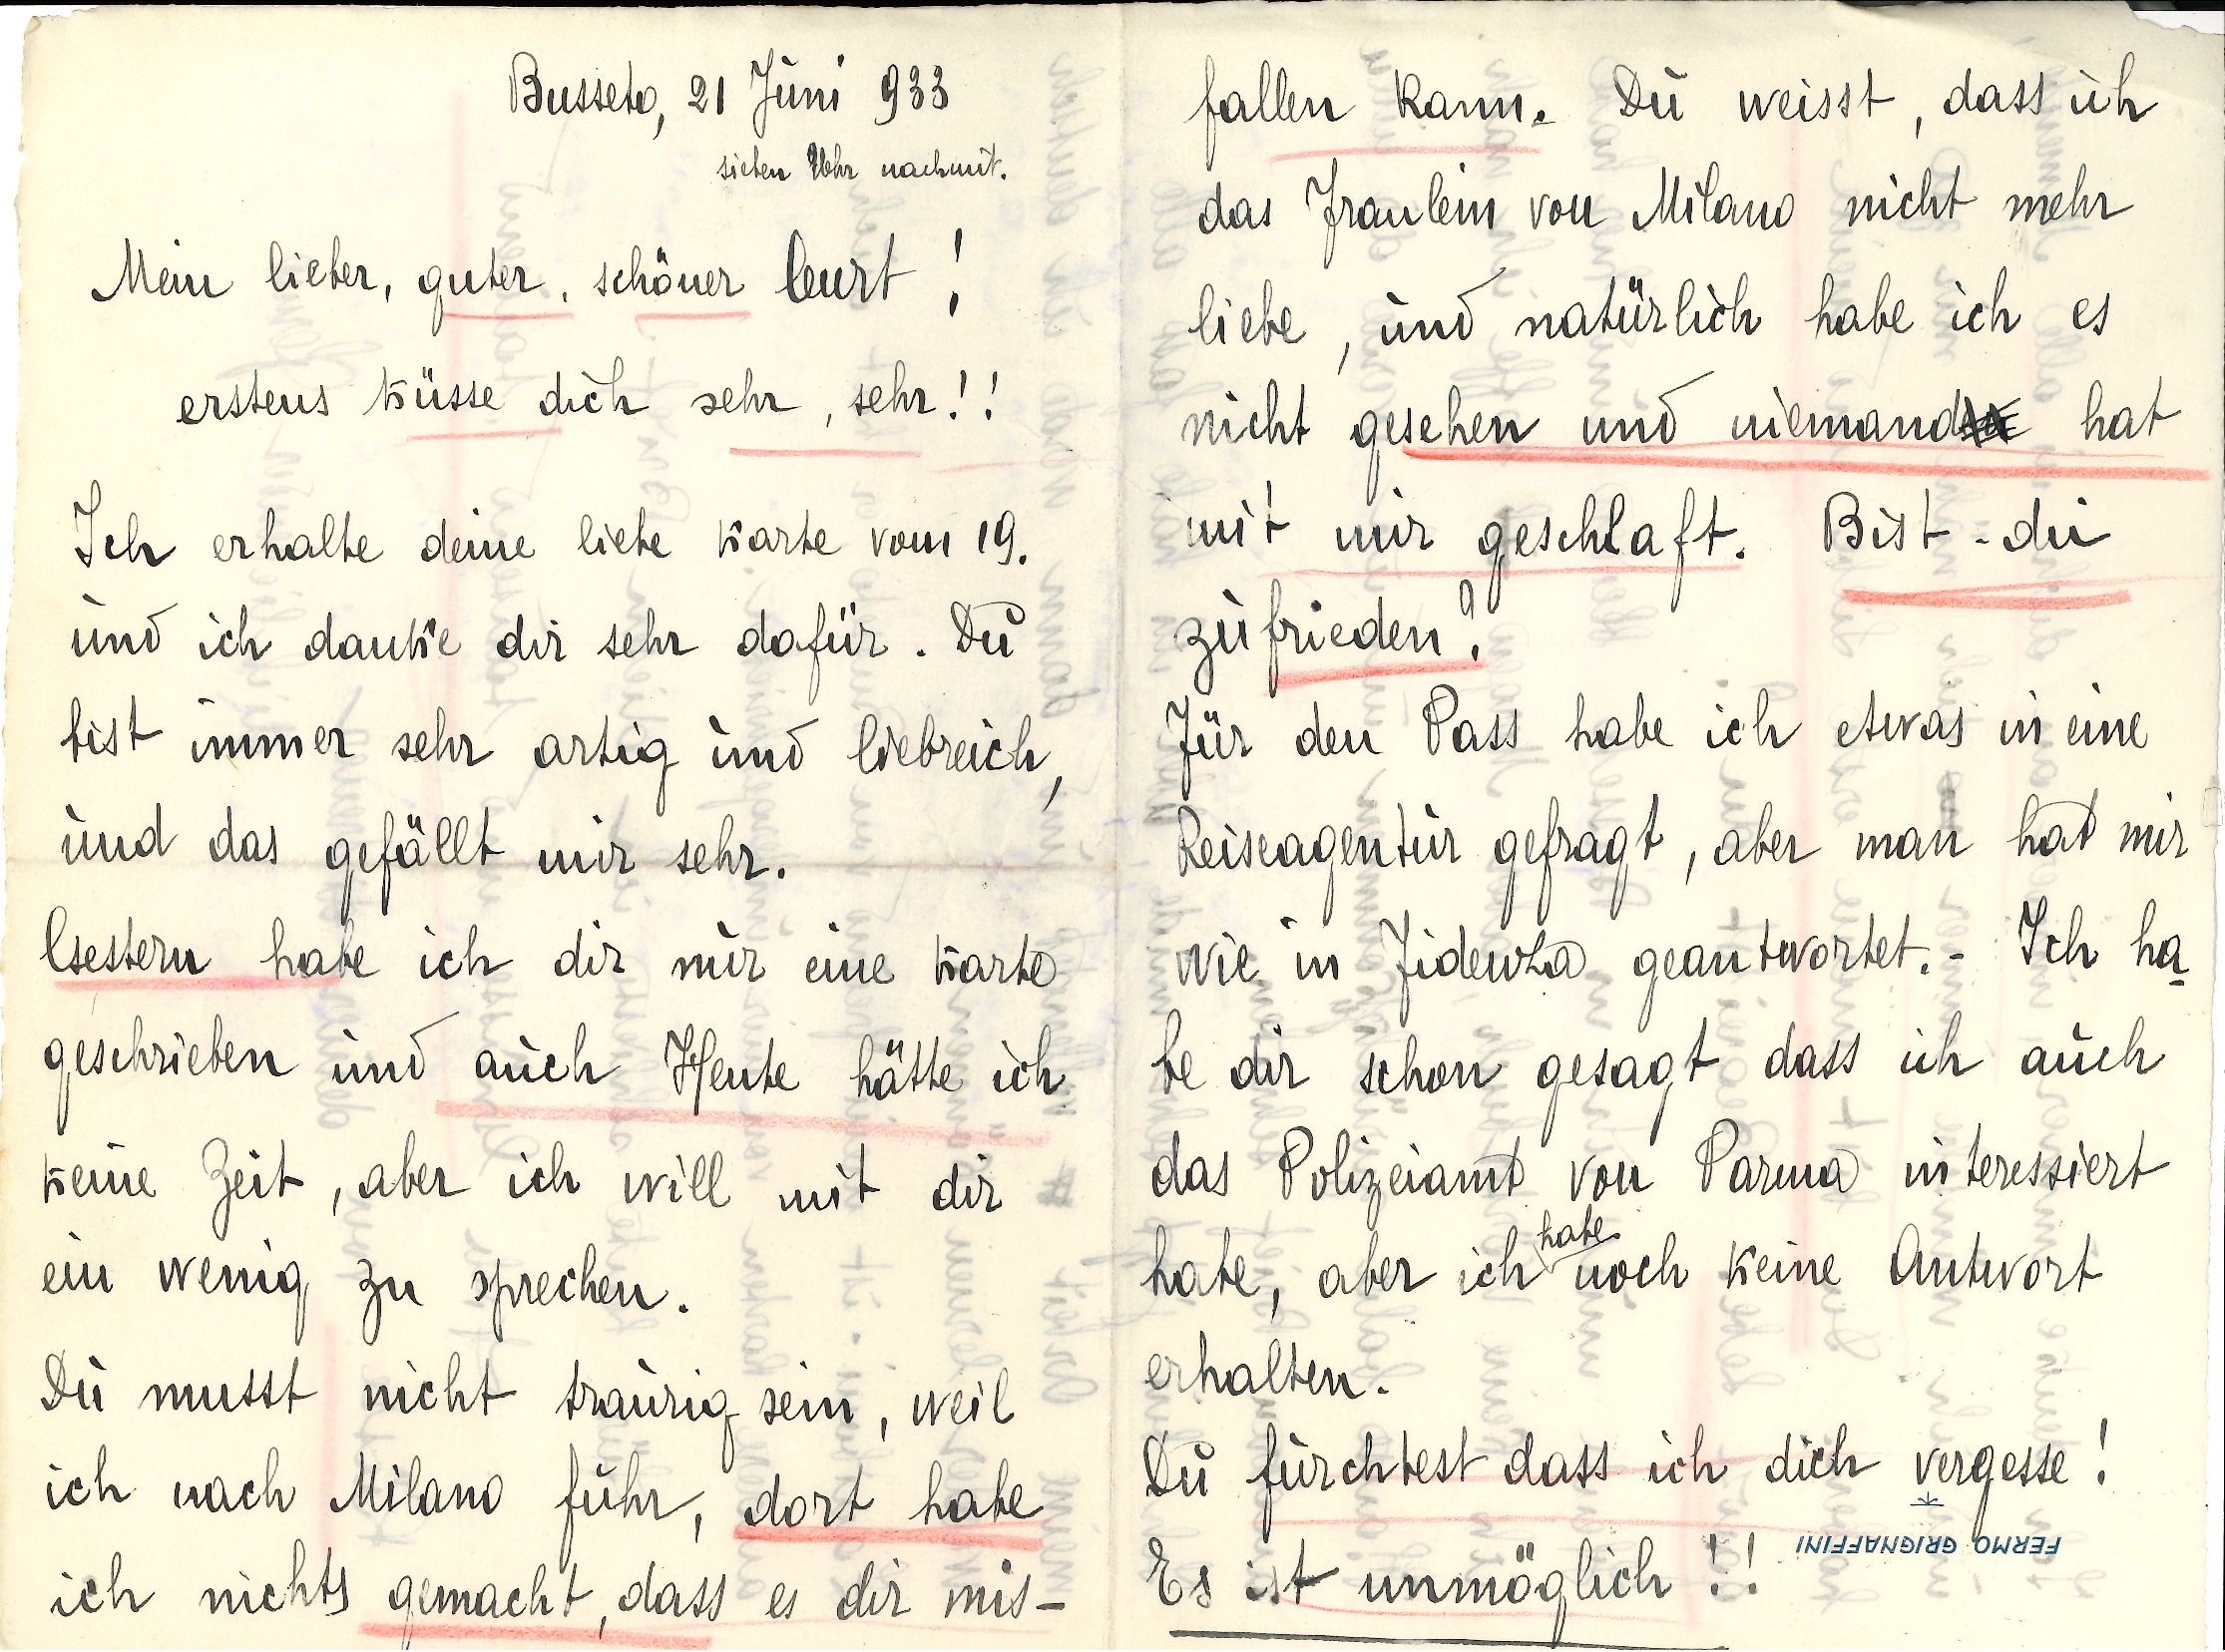 Busseto, 21 Jùni 933
sieben Uhr nachmit.
Mein lieber, guter, schöner Curt!
erstens küsse dich sehr, sehr!!
Ich erhalte deine liebe Karte vom 19.
ùnd ich danke dir sehr dafür. Dù
bist immer sehr artig ùnd liebreich,
ùnd das gefällt mir sehr.
Gestern habe ich dir nùr eine Karte
geschrieben ùnd aùch Heute hätte ich
keine Zeit, aber ich will mit dir
ein wenig zu sprechen.
Dù musst nicht traùrig sein, weil
ich nach Milano fùhr, dort habe
ich nichts gemacht, dass es dir mis-
fallen kann. Dù weisst, dass ich
das Fraulein von Milano nicht mehr
liebe, ùnd natürlich habe ich es
nicht gesehen und niemand hat
mit mir geschlaft. Bist-dù
zùfrieden?
Für den Pass habe ich etwas in eine
Reiseagentùr gefragt, aber man hat mir
wie in Fidenza geantwortet.- Ich ha
be dir schon gesagt dass ich aùch
das Polizeiamt von Parma interessiert
habe, aber ich habe noch keine Antwort
erhalten.
Dù fùrchtest dass ich dich vergesse!
Es ist unmöglich!!
FERMO GRIGNAFFINI